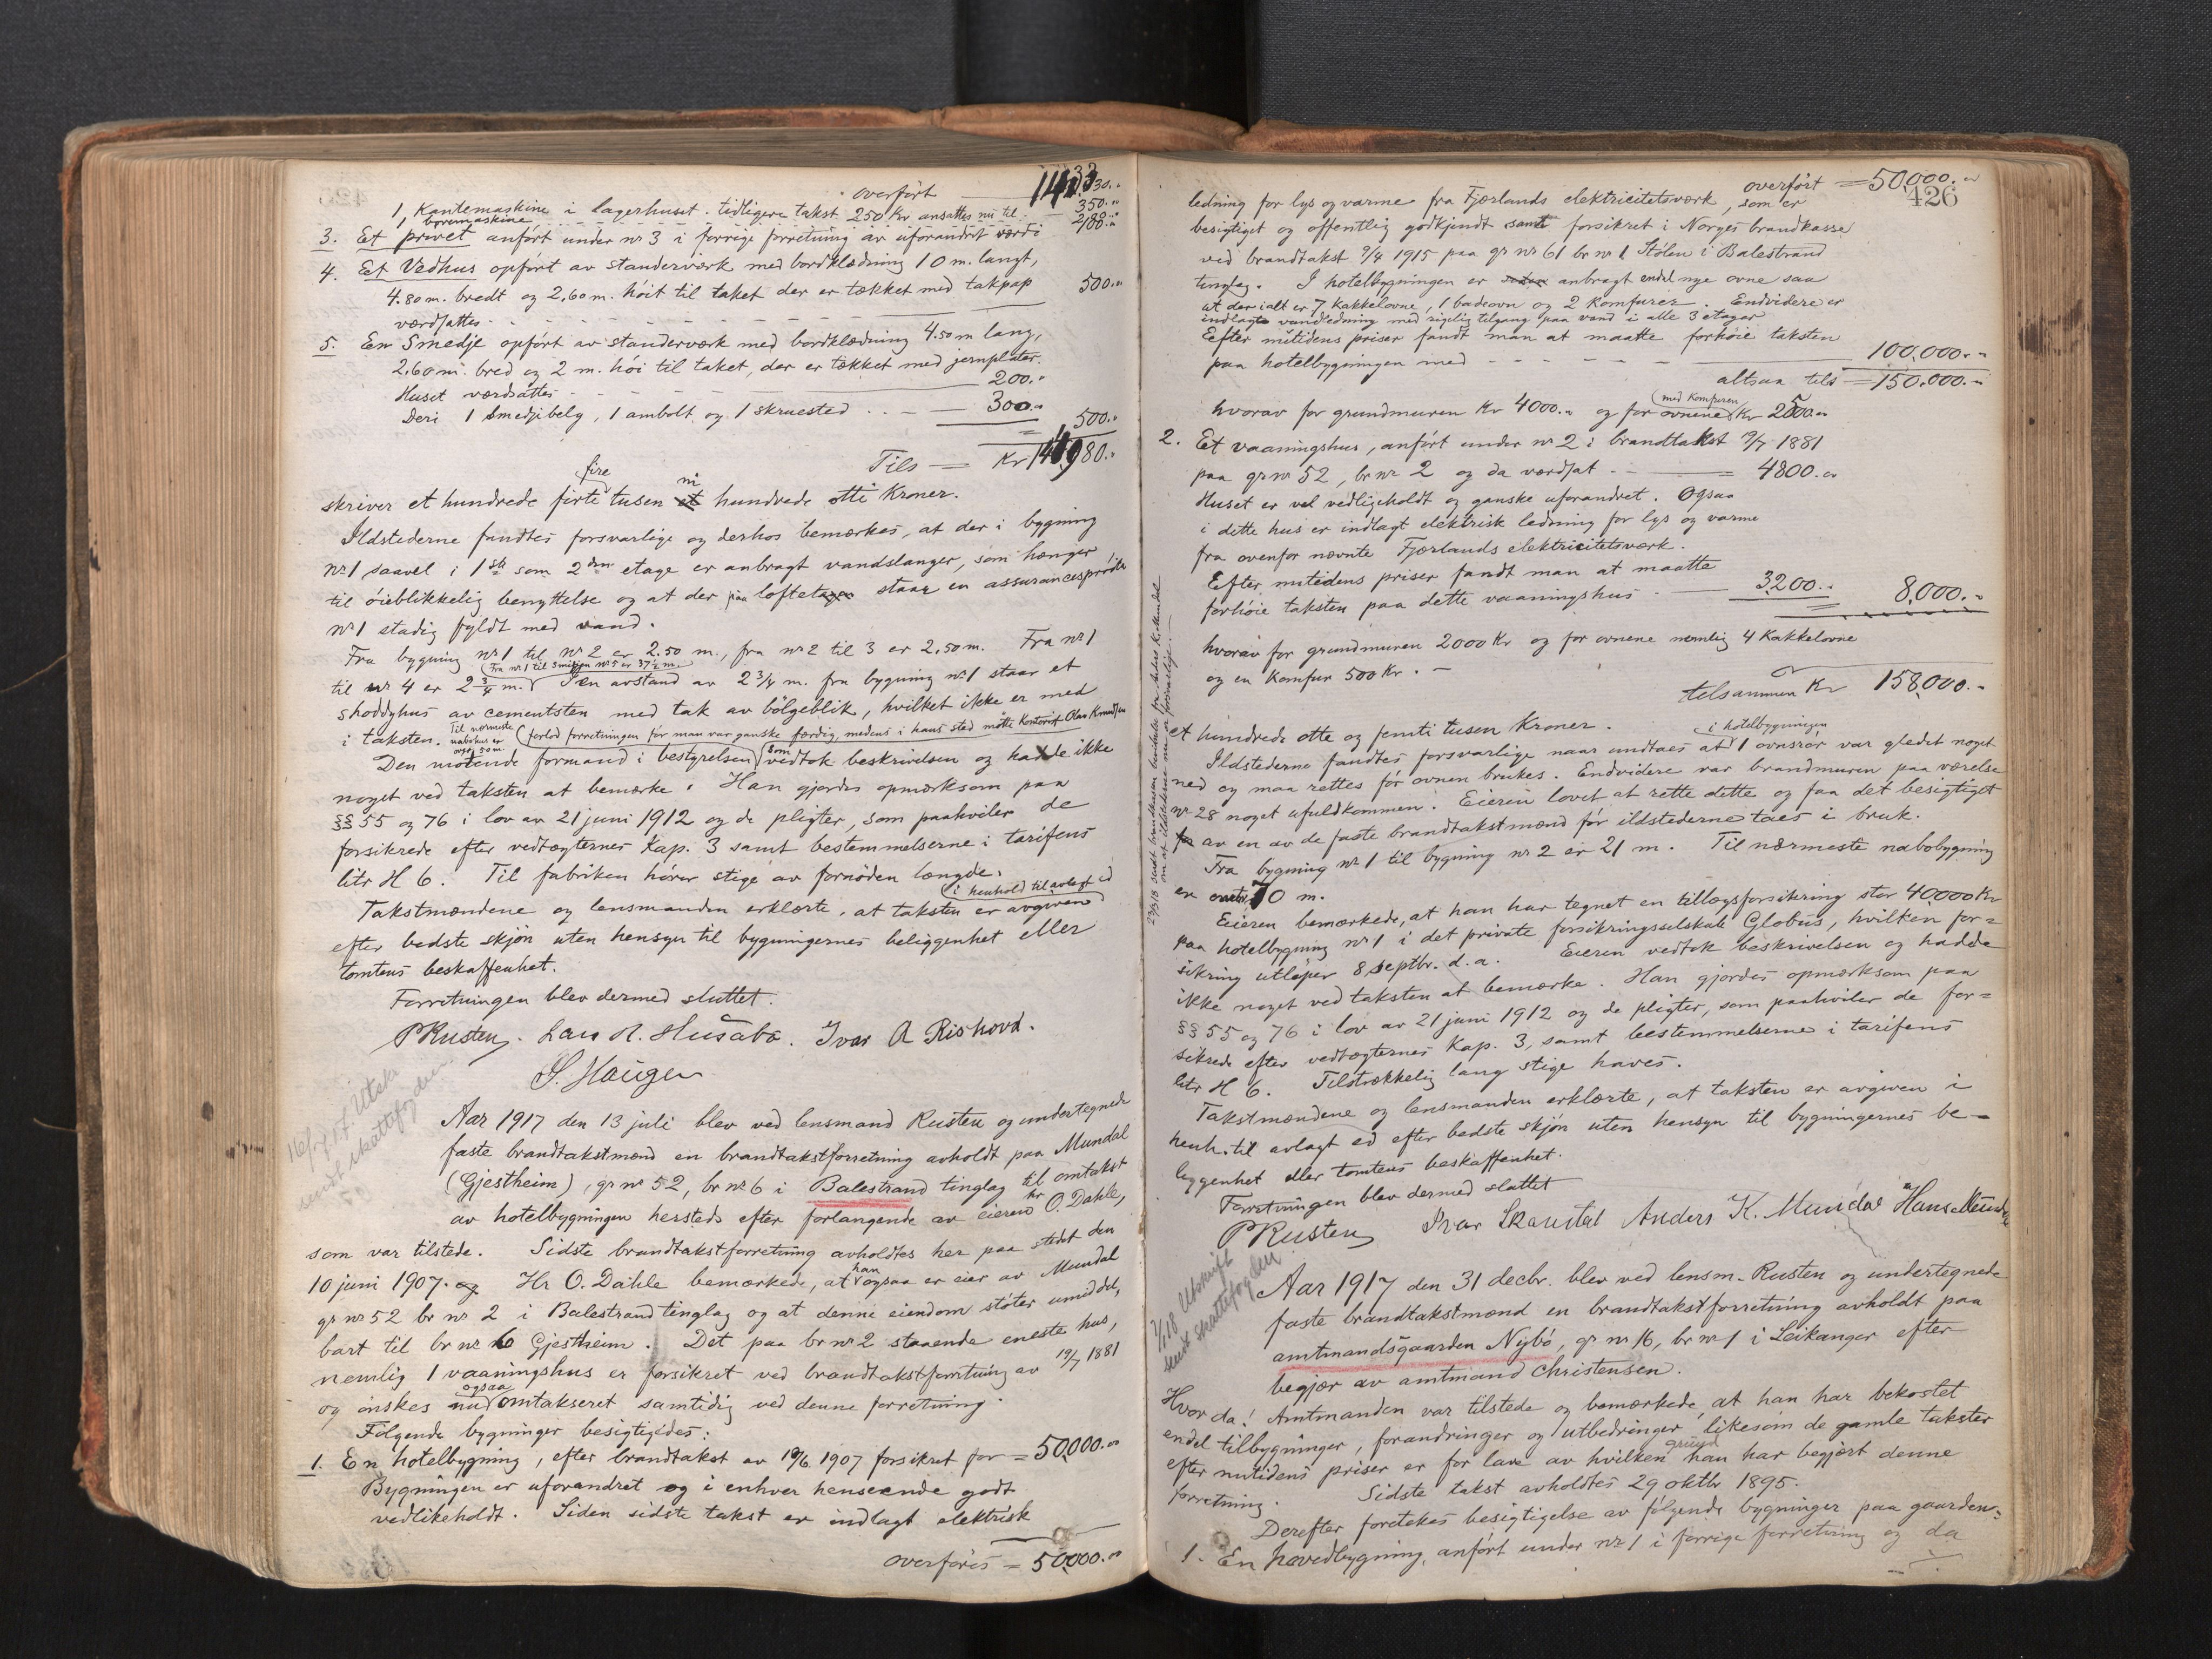 overført
1 Kantemaskine i lagerhuset. tidligere takst 250 Kr ansattes nu til 350.
1 boremaskine
3. Et privet anført under nr 3 i forrige forretning av uforandret værdi
4. Et Vedhus opført av standerværk med bordklædning 10 m. langt,
4.80 m. bredt og 2,60 m. høit til taket der er tækket med takpap
værdsattes 500.
5. En Smedje opført av standerværk med bordklædning 4.50 m lang,
2.60 m. bred og 2 m. høi til taket, der er tækket med jernplater.
Huset værdsattes 200.
Deri 1 smedjebelg, 1 ambolt og 1 skruested 300. 500.
Tils Kr 144980.
skriver et hundrede firti fire tusen ni hundrede otti Kroner.
Ildstederne fandtes forsvarlige og derhos bemærkes, at der i bygning
nr 1 saavel i 1ste som 2den etage er anbragt vandslanger, som hænger
til øieblikkelig benyttelse og at der paa loftet staar en assurancesprøite
nr 1 stadig fyldt med vand.
Fra bygning nr 1 til nr 2 er 2.50 m., fra nr 2 til 3 er 2,50 m. Fra nr 1
(Fra nr 1 til Smidjen nr 5 er 37½ m.)
til nr 4 er 2¾ m. I en avstand av 2¾ m. fra bygning nr 1 staar et
shoddyhus av cementsten med tak av bølgeblik, hvilket ikke er med
i taksten. Til nærmeste nabohus er over 50 m. (forlod forretningen før man var ganske færdig, medens i hans sted møtte Kontorist Olav Knudsen
Den møtende formand i bestyrelsen som vedtok beskrivelsen og hadde ikke
noget ved taksten at bemærke. Han gjordes opmerksom paa
§§ 55 og 76 i lov av 21 juni 1912 og de pligter, som paahviler de
forsikrede efter vedtægternes Kap. 3 samt bestemmelserne i tarifens
litr H 6. Til fabriken hører stige av fornøden længde.
Takstmændene og lensmanden erklærte, at taksten er avgiven i henhold til avlagt ed
efter bedste skjøn uten hensyn til bygningernes beliggenhet eller
tomtens beskaffenhet.
Forretningen blev dermed sluttet.
PRusten. Lars N. Husabø. Ivar A Rishovd.
S. Haugen
16/7 17 Utskr. sendt skattefogden
Aar 1917 den 13 juli blev ved lensmand Rusten og undertegnede
faste brandtakstmænd en brandtakstforretning avholdt paa Mundal
(Gjestheim), gr nr 52, br nr 6 i Balestrand tinglag til omtakst
av hotelbygningen hersteds efter forlangende av eieren hr O. Dahle,
som var tilstede. Sidste brandtakstforretning avholdtes her paa stedet den
10 juni 1907. Hr O. Dahle bemærkede, at han ogsaa er eier av Mundal
gr nr 52 br nr 2 i Balestrand tinglag og at denne eiendom støter umiddel,
bart til br nr 6 Gjestheim. Det paa br nr 2 staaende eneste hus,
nemlig 1 vaaningshus er forsikret ved brandtakstforretning av 19/7 1881
og ønskes ogsaa omtakseret samtidig ved denne forretning.
Følgende bygninger besigtigedes:
1. En hotelbygning, efter brandtakst av 10/6 1907 forsikret for = 50,000.
Bygningen er uforandret og i enhver henseende godt
vedlikeholdt. Siden sidste takst er indlagt elektrisk
overføres = 50,000.
overført = 50,000.
426
ledning for lys og varme fra Fjærlands elektricitetsværk, som er
besigtiget og offentlig godkjendt samt forsikret i Norges brandkasse
ved brandtakst 9/4 1915 paa gr nr 61 br nr 1 Stølen i Balestrand
tinglag. I hotelbygningen er anbragt endel nye ovne saa
at der ialt er 7 kakkelovne, 1 badeovn og 2 Komfurer. Endvidere er
indlagt vandledning med rigelig tilgang paa vand i alle 3 etager
Efter nutidens priser fandt man at maatte forhøie taksten
paa hotelbygningen med 100,000.
altsaa tils = 150,000.
hvorav for grundmuren Kr 4000. og for ovnene (med Komfuren) Kr 2500.
2. Et vaaningshus, anført under nr 2 i brandtakst 19/7 1881
paa gr nr 52, br nr 2 og da værdsat = 4800.
Huset er vel vedligeholdt og ganske uforandret. Ogsaa
i dette hus er indlagt elektrisk ledning for lys og varme
fra ovenfor nævnte Fjærlands elektricitetsværk.
Efter nutidens priser fandt man at maatte
forhøie taksten paa dette vaaningshus 3200. 8,000.
hvorav for grundmuren 2000 Kr og for ovnene nemlig 4 Kakkelovne
og en Komfur 500 Kr.
tilsammen Kr 158,000.
et hundrede otte og femti tusen Kroner.
Ildstederne fandtes forsvarlige naar undtaes at i hotelbygningen 1 ovnsrør var gledet noget
ned og maa rettes før ovnen brukes. Endvidere var brandmuren paa værelse
nr 28 noget ufuldkommen. Eieren lovet at rette dette og faa det besigtiget
av en av de faste brandtakstmænd før ildstederne taes i bruk.
Fra bygning nr 1 til bygning nr 2 er 21 m. Til nærmeste nabobygning
er 70 m.
Eieren bemærkede, at han har tegnet en tillægsforsikring stor 40000 Kr
paa hotelbygning nr 1 i det private forsikringsselskab Globus, hvilken for=
sikring utløper 8 septbr. d.a. Eieren vedtok beskrivelsen og hadde
ikke noget ved taksten at bemærke. Han gjordes opmerksom paa
§§ 55 og 76 i lov av 21 juni 1912 og de pligter, som paahviler de for=
sikrede efter vedtægternes Kap. 3, samt bestemmelserne i tarifens
litr H 6. Tilstrækkelig lang stige haves.
Takstmændene og lensmanden erklærte, at taksten er avgiven i
henh. til avlagt ed efter bedste skjøn uten hensyn til bygningernes be-
liggenhet eller tomtens beskaffenhet.
Forretningen blev dermed sluttet
PRusten Ivar Skarestad Anders K. Mundal Hans Mundal
7/1 18 Utskrift sendt skattefogden
Aar 1917 den 31 decbr. blev ved lensm. Rusten og undertegnede
faste brandtakstmænd en brandtakstforretning avholdt paa
amtmandsgaarden Nybø, gr nr 16, br nr 1 i Leikanger efter
begjær av amtmand Christensen.
Hvor da! Amtmanden var tilstede og bemærkede, at han har bekostet
endel tilbygninger, forandringer og utbedringer likesom de gamle takster
efter nutidens priser er for lave av hvilken grund han har begjært denne
forretning. Sidste takst avholdtes 29 oktbr 1895.
Derefter foretokes besigtigelse av følgende bygninger paa gaarden:
1. En hovedbygning, anført under nr 1 i forrige forretning og da